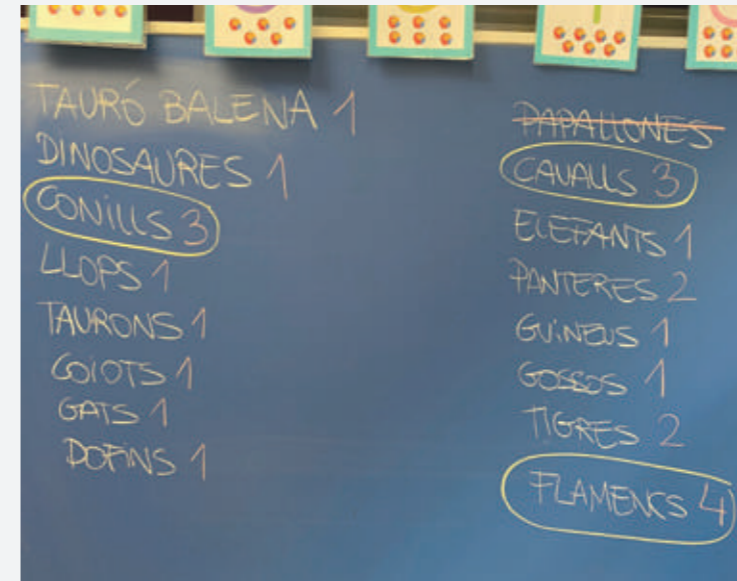 TAURÓ BALENA 1
DINOSAURES 1
CONILLS 3
LLOPS 1
TAURONS 1
COIOTS 1
GATS 1
DOFINS 1
PAPALLONES
CAVALLS 3
ELEFANTS 1
PANTERES 2
GUINEUS 1
GOSSOS 1
TIGRES 2
FLAMENCS 4